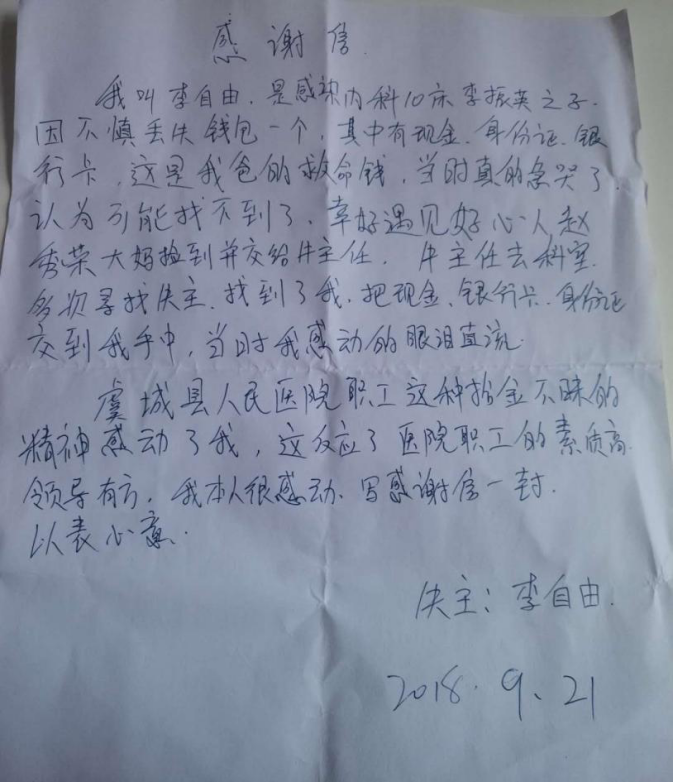 感谢信
我叫李自由.是感染内科10床李振英之子.
因不慎丢失钱包一个,其中有现金.身份证.银
行卡,这是我爸的救命钱,当时真的急哭了.
认为可能找不到了,幸好遇见好心人赵
秀荣大妈捡到并交给牛主任.牛主任去科室
多次寻找失主.找到了我.把现金、银行卡.身份证
交到我手中,当时我感动的眼泪直流.
虞城县人民医院职工这种拾金不昧的
精神感动了我,这反应了医院职工的素质高.
领导有方,我本人很感动.写感谢信一封.
以表心意.
失主:李自由.
2018.9、21